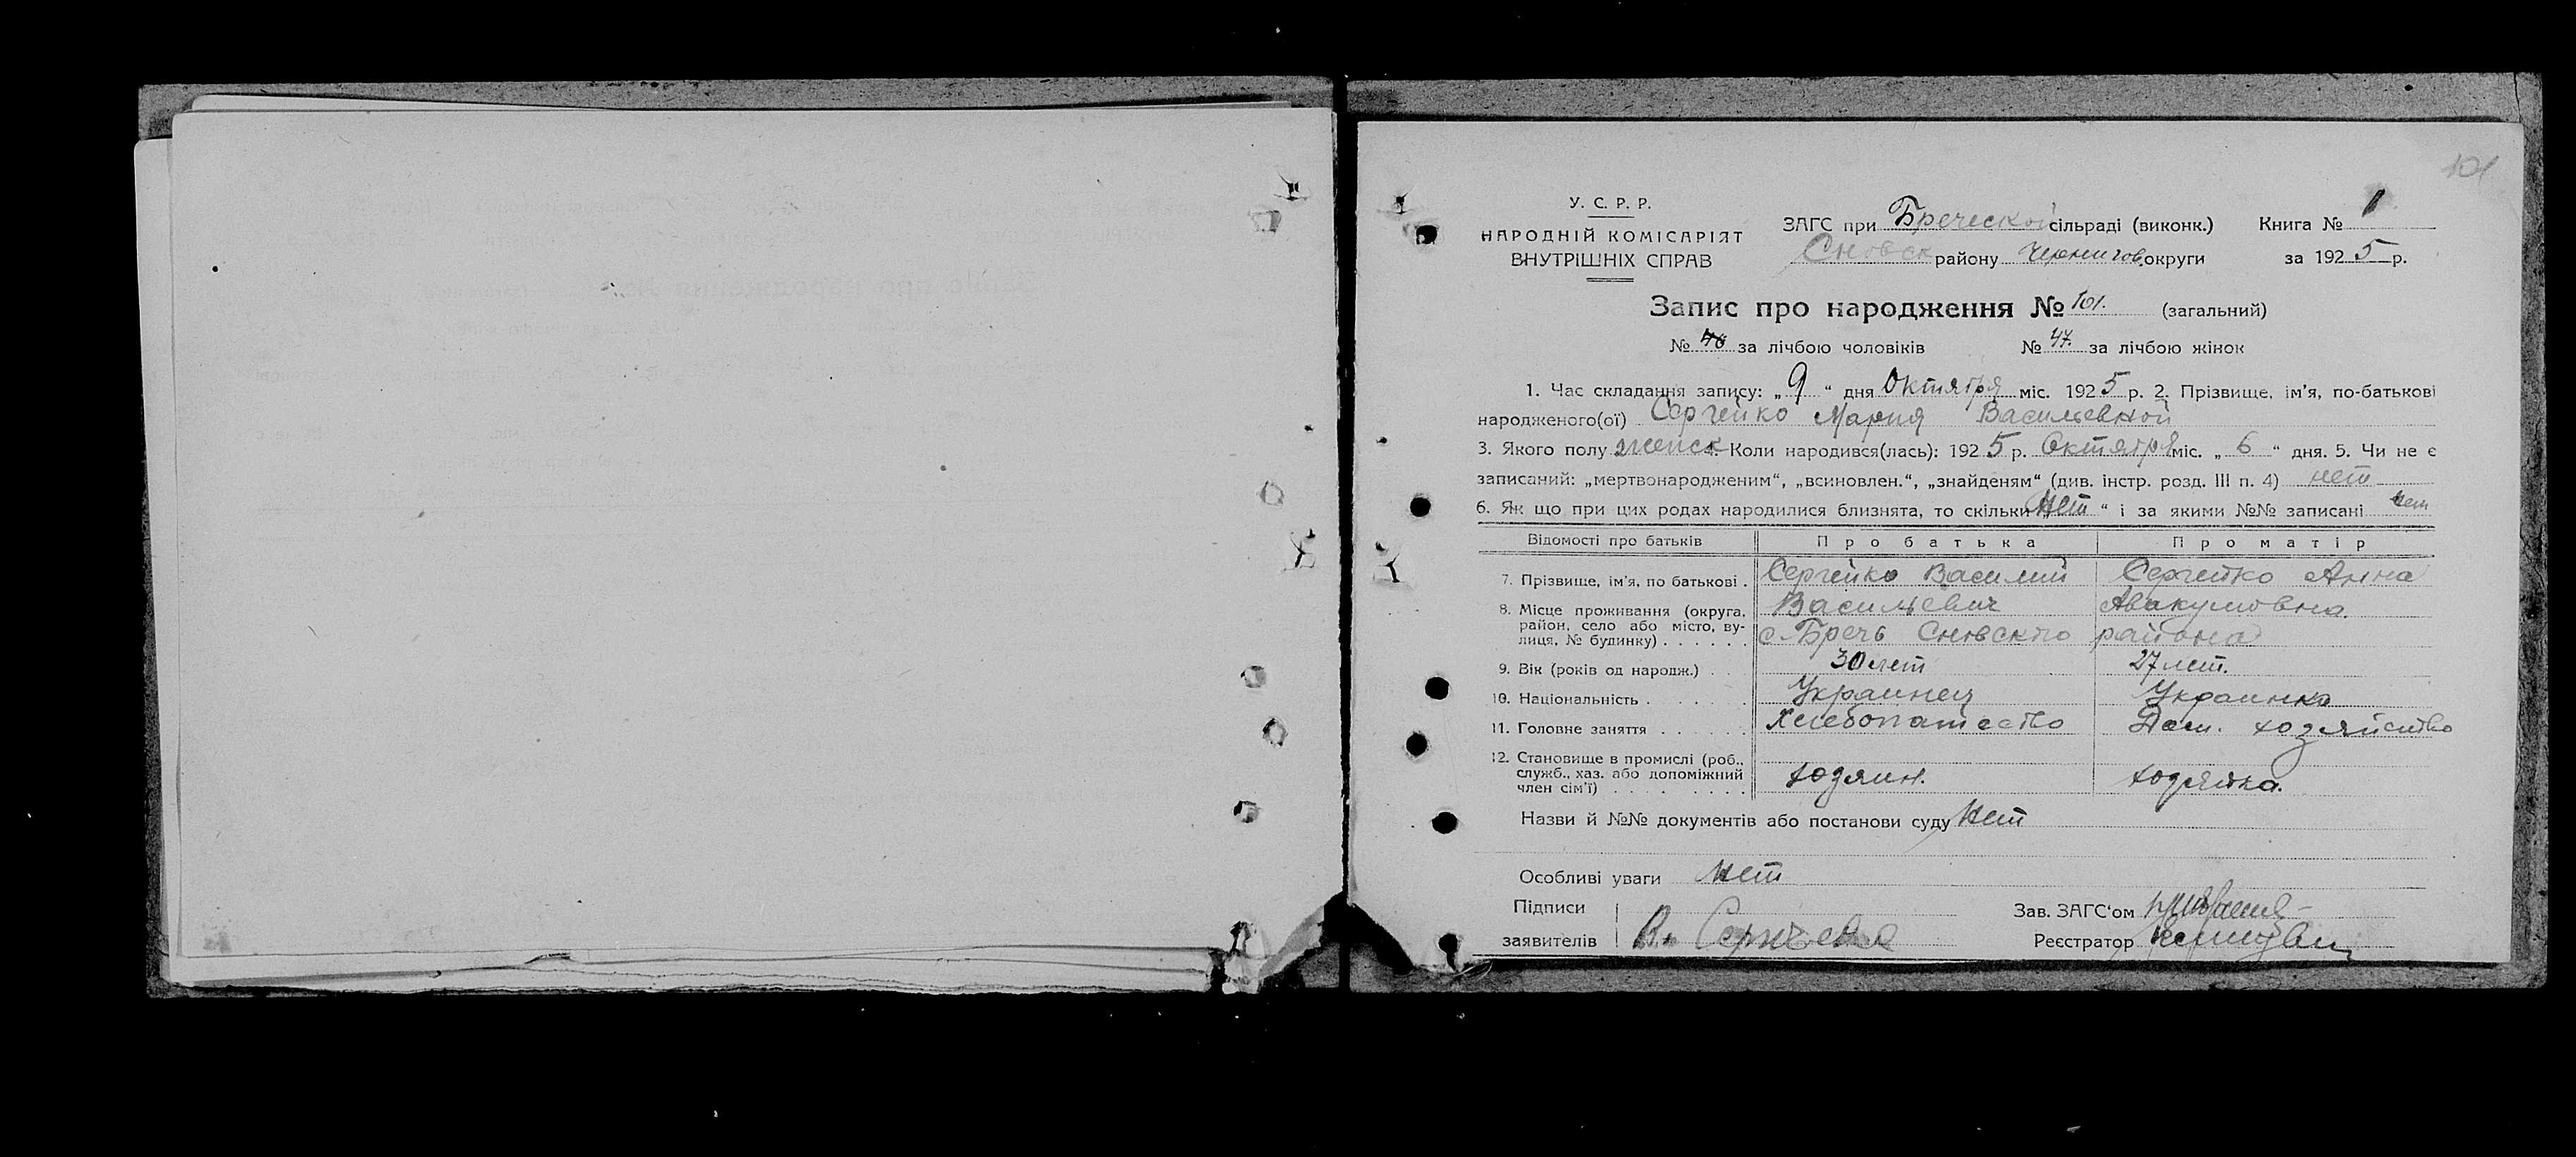 101
У. С. Р. Р.
НАРОДНІЙ КОМІСАРІЯТ
ВНУТРІШНІХ СПРАВ
ЗАГС при Бреческой сільраді (виконк.) Книга № 1
Сновск району Чернигов. округи за 1925 р.
Запис про народження № 101. (загальний)
№ за лічбою чоловіків № 47. за лічбою жінок
1. Час складання запису: „ 9 “ дня Октября міс. 1925 р. 2. Прізвище, ім’я, по-батькові
народженого(ої) Сергейко Мария Васильевной
3. Якого полу женск. Коли народився(лась): 1925 р. Октября міс. „ 6 “ дня. 5. Чи не є
записаний: „мертвонародженим“, „всиновлен.“, „знайденям“ (див. інстр. розд. III п. 4) нет
6. Як що при цих родах народилися близнята, то скільки нет “ і за якими №№ записані нет
Відомості про батьків Про батька Про матір
7. Прізвище, ім’я, по батькові . Сергейко Василий Сергейко Анна
8. Місце проживання (округа, Васильевич Авакумовна.
район, село або місто, ву-
лиця, № будинку) . . . . . . с. Бречь Сновского района
9. Вік (років од народж.) . . 30 лет 27 лет.
10. Національність . . . . . . Украинец Украинка
11. Головне заняття . . . . . . Хлебопашество Дом. хозяйство
12. Становище в промислі (роб.,
служб., хаз. або допоміжний хозяин. хозяйка.
член сім’ї) . . . . . . . .
Назви й №№ документів або постанови суду Нет
Особливі уваги Нет
Підписи Зав. ЗАГС‘ом
заявителів В. Реєстратор